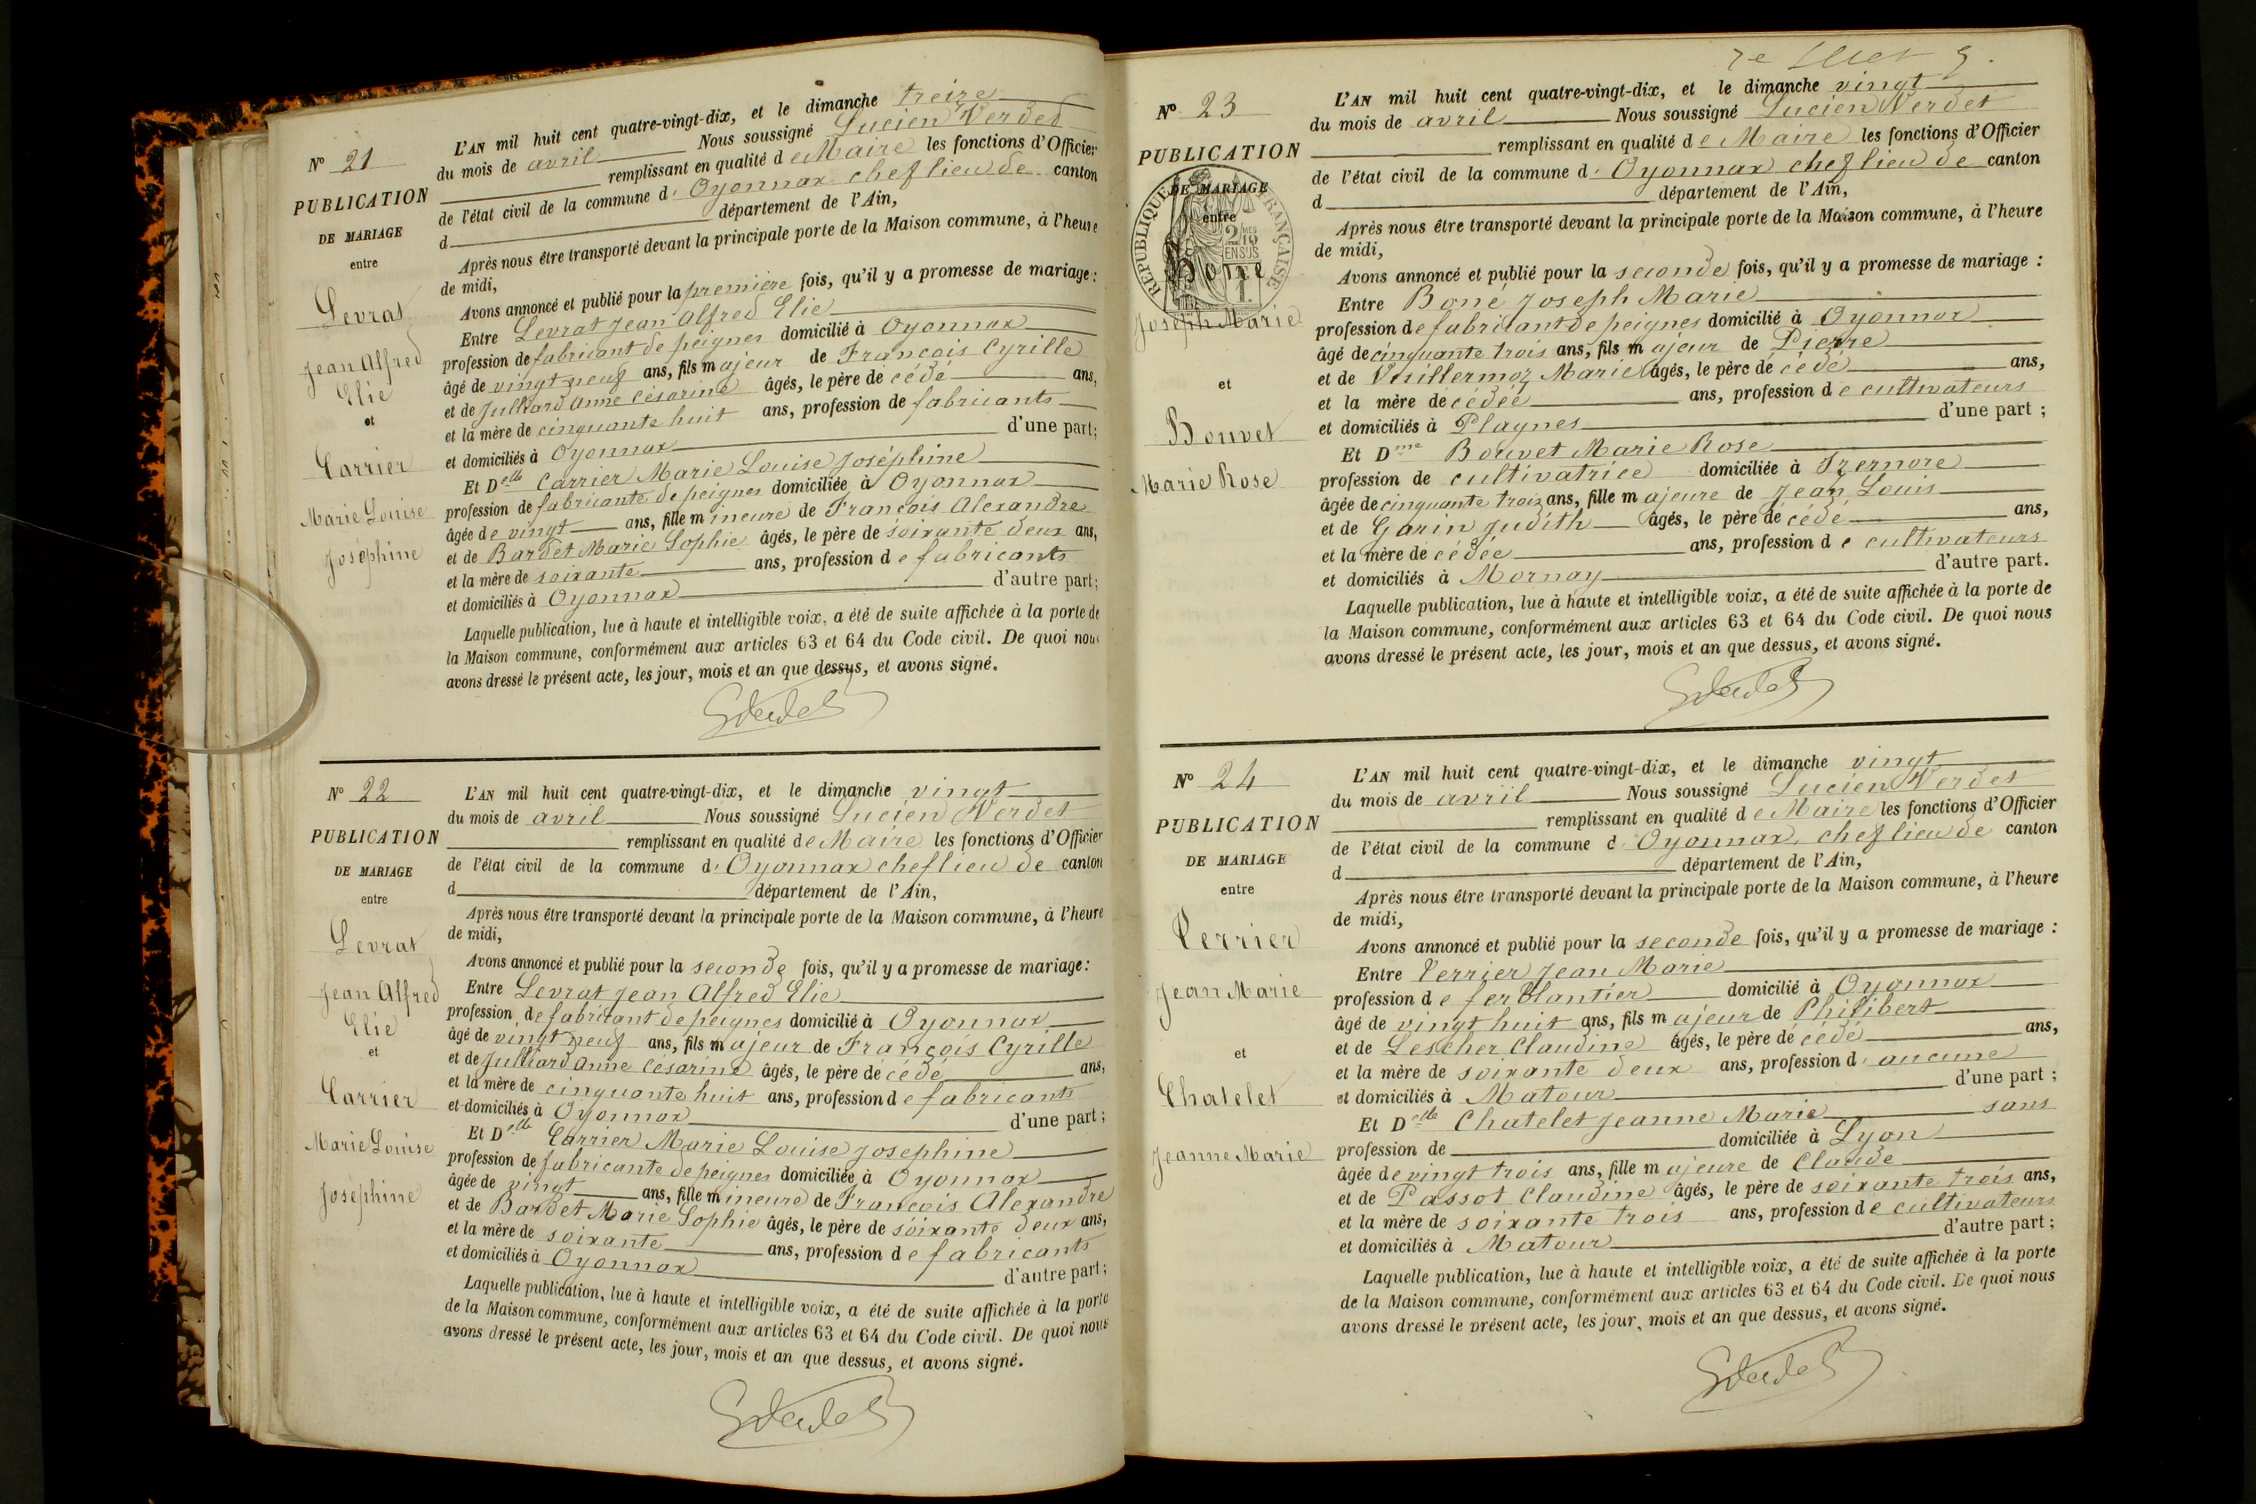 Nº 21
PUBLICATION
DE MARIAGE
entre
Levrat
Jean Alfred
Elie
et
Carrier
Marie Louise
Joséphine
L'AN mil huit cent quatre-vingt-dix, et le dimanche treize
du mois de avril Nous soussigné Lucien Verdet
remplissant en qualité de Maire les fonctions d'Officier
de l'état civil de la commune d'Oyonnax chef lieu de canton
d département de l'Ain,
Après nous être transporté devant la principale porte de la Maison commune, à l'heure
de midi,
Avons annoncé et publié pour la première fois, qu'il y a promesse de mariage :
Entre Levrat Jean Alfred Elie
profession de fabricant de peignes domicilié à Oyonnax
âgé de vingt neuf ans, fils majeur de François Cyrille
et de Julliard Anne Césarine âgés, le père de cédé ans,
et la mère de cinquante huit ans, profession de fabricants
et domiciliés à Oyonnax d'une part;
Et Delle Carrier Marie Louise Joséphine
profession de fabricante de peignes domiciliée à Oyonnax
âgée de vingt ans, fille mineure de François Alexandre
et de Bardet Marie Sophie âgés, le père de soixante deux ans,
et la mère de soixante ans, profession de fabricants
et domiciliés à Oyonnax d'autre part;
Laquelle publication, lue à haute et intelligible voix, a été de suite affichée à la porte de
la Maison commune, conformément aux articles 63 et 64 du Code civil. De quoi nous
avons dressé le présent acte, les jour, mois et an que dessus, et avons signé.
Nº 22
PUBLICATION
DE MARIAGE
entre
Levrat
Jean Alfred
Elie
et
Carrier
Marie Louise
Josephine
L'AN mil huit cent quatre-vingt-dix, et le dimanche vingt
du mois de avril Nous soussigné Lucien Verdet
remplissant en qualité de Maire les fonctions d'Officier
de l'état civil de la commune d'Oyonnax chef lieu de canton
d département de l'Ain,
Après nous être transporté devant la principale porte de la Maison commune, à l'heure
de midi,
Avons annoncé et publié pour la seconde fois, qu'il y a promesse de mariage :
Entre Levrat Jean Alfred Elie
profession de fabricant de peignes domicilié à Oyonnax
âgé de vingt neuf ans, fils majeur de François Cyrille
et de Julliard Anne Césarine âgés, le père de cédé ans,
et la mère de cinquante huit ans, profession de fabricants
et domiciliés à Oyonnax d'une part;
Et Delle Carrier Marie Louise Josephine
profession de fabricante de peignes domiciliée à Oyonnax
âgée de vingt ans, fille mineure de François Alexandre
et de Bardet Marie Sophie âgés, le père de soixante deux ans,
et la mère de soixante ans, profession de fabricants
et domiciliés à Oyonnax d'autre part;
Laquelle publication, lue à haute et intelligible voix, a été de suite affichée à la porte
de la Maison commune, conformément aux articles 63 et 64 du Code civil. De quoi nous
avons dressé le présent acte, les jour, mois et an que dessus, et avons signé.
Nº 23
PUBLICATION
DE MARIAGE
entre
RÉPUBLIQUE FRANÇAISE
2/10 EN SUS
Joseph Marie
et
Bouvet
Marie Rose
L'AN mil huit cent quatre-vingt-dix, et le dimanche vingt
du mois de avril Nous soussigné Lucien Verdet
remplissant en qualité de Maire les fonctions d'Officier
de l'état civil de la commune d'Oyonnax chef lieu de canton
d département de l'Ain,
Après nous être transporté devant la principale porte de la Maison commune, à l'heure
de midi,
Avons annoncé et publié pour la seconde fois, qu'il y a promesse de mariage :
Entre Boné Joseph Marie
profession de fabricant de peignes domicilié à Oyonnax
âgé de cinquante trois ans, fils majeur de Pierre
et de Vuillermoz Marie âgés, le père dé cédé ans,
et la mère de cédée ans, profession de cultivateurs
et domiciliés à Plagnes d'une part;
Et Dme Bouvet Marie Rose
profession de cultivatrice domiciliée à Izernore
âgée de cinquante trois ans, fille majeure de Jean Louis
et de Garin Judith âgés, le père dé cédé ans,
et la mère dé cédée ans, profession de cultivateurs
et domiciliés à Mornay d'autre part.
Laquelle publication, lue à haute et intelligible voix, a été de suite affichée à la porte de
la Maison commune, conformément aux articles 63 et 64 du Code civil. De quoi nous
avons dressé le présent acte, les jour, mois et an que dessus, et avons signé.
Nº 24
PUBLICATION
DE MARIAGE
entre
Verrier
Jean Marie
et
Chatelet
Jeanne Marie
L'AN mil huit cent quatre-vingt-dix, et le dimanche vingt
du mois de avril Nous soussigné Lucien Verdet
remplissant en qualité de Maire les fonctions d'Officier
de l'état civil de la commune d'Oyonnax, chef lieu de canton
d département de l'Ain,
Après nous être transporté devant la principale porte de la Maison commune, à l'heure
de midi,
Avons annoncé et publié pour la seconde fois, qu'il y a promesse de mariage :
Entre Verrier Jean Marie
profession de ferblantier domicilié à Oyonnax
âgé de vingt huit ans, fils majeur de Philibert
et de Lescher Claudine âgés, le père dé cédé ans,
et la mère de soixante deux ans, profession d'aucune
et domiciliés à Matour d'une part;
Et Delle Chatelet Jeanne Marie sans
profession de domiciliée à Lyon
âgée de vingt trois ans, fille majeure de Claude
et de Passot Claudine âgés, le père de soixante trois ans,
et la mère de soixante trois ans, profession de cultivateurs
et domiciliés à Matour d'autre part;
Laquelle publication, lue à haute et intelligible voix, a été de suite affichée à la porte
de la Maison commune, conformément aux articles 63 et 64 du Code civil. De quoi nous
avons dressé le présent acte, les jour, mois et an que dessus, et avons signé.